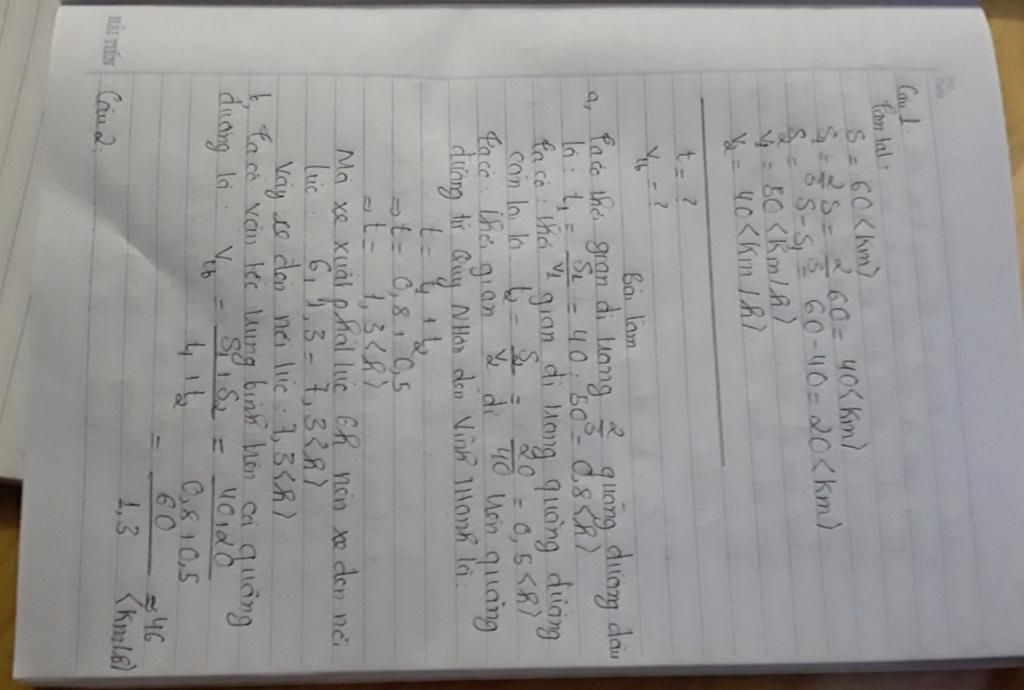 HẢI TIẾN
Câu 1.
Tóm tắt:
S = 60 <km>
S₁ = 2/3 S = 2/3 60 = 40 <km>
S₂ = S - S₁ = 60 - 40 = 20 <km>
V₁ = 50 <km/h>
V₂ = 40 <km/h>
t = ?
Vtb = ?
Bài làm
a, Ta có thời gian đi trong 2/3 quãng đường đầu
là: t₁ = S₁/V₁ = 40 : 50 = 0,8 <h>
Ta có: thời gian đi trong quãng đường
còn lại là t₂ = S₂/V₂ = 20/40 = 0,5 <h>
Ta có: thời gian đi trên quãng
đường từ Quy Nhơn đến Vĩnh Thạnh là:
t = t₁ + t₂
=> t = 0,8 + 0,5
=> t = 1,3 <h>
Mà xe xuất phát lúc 6h nên xe đến nơi
lúc: 6 + 1,3 = 7,3 <h>
Vậy xe đến nơi lúc: 7,3 <h>
b, Ta có vận tốc trung bình trên cả quãng
đường là: Vtb = S₁+S₂/t₁+t₂ = 40+20/0,8+0,5
= 60/1,3 ≈ 46 <km/h>
Câu 2.